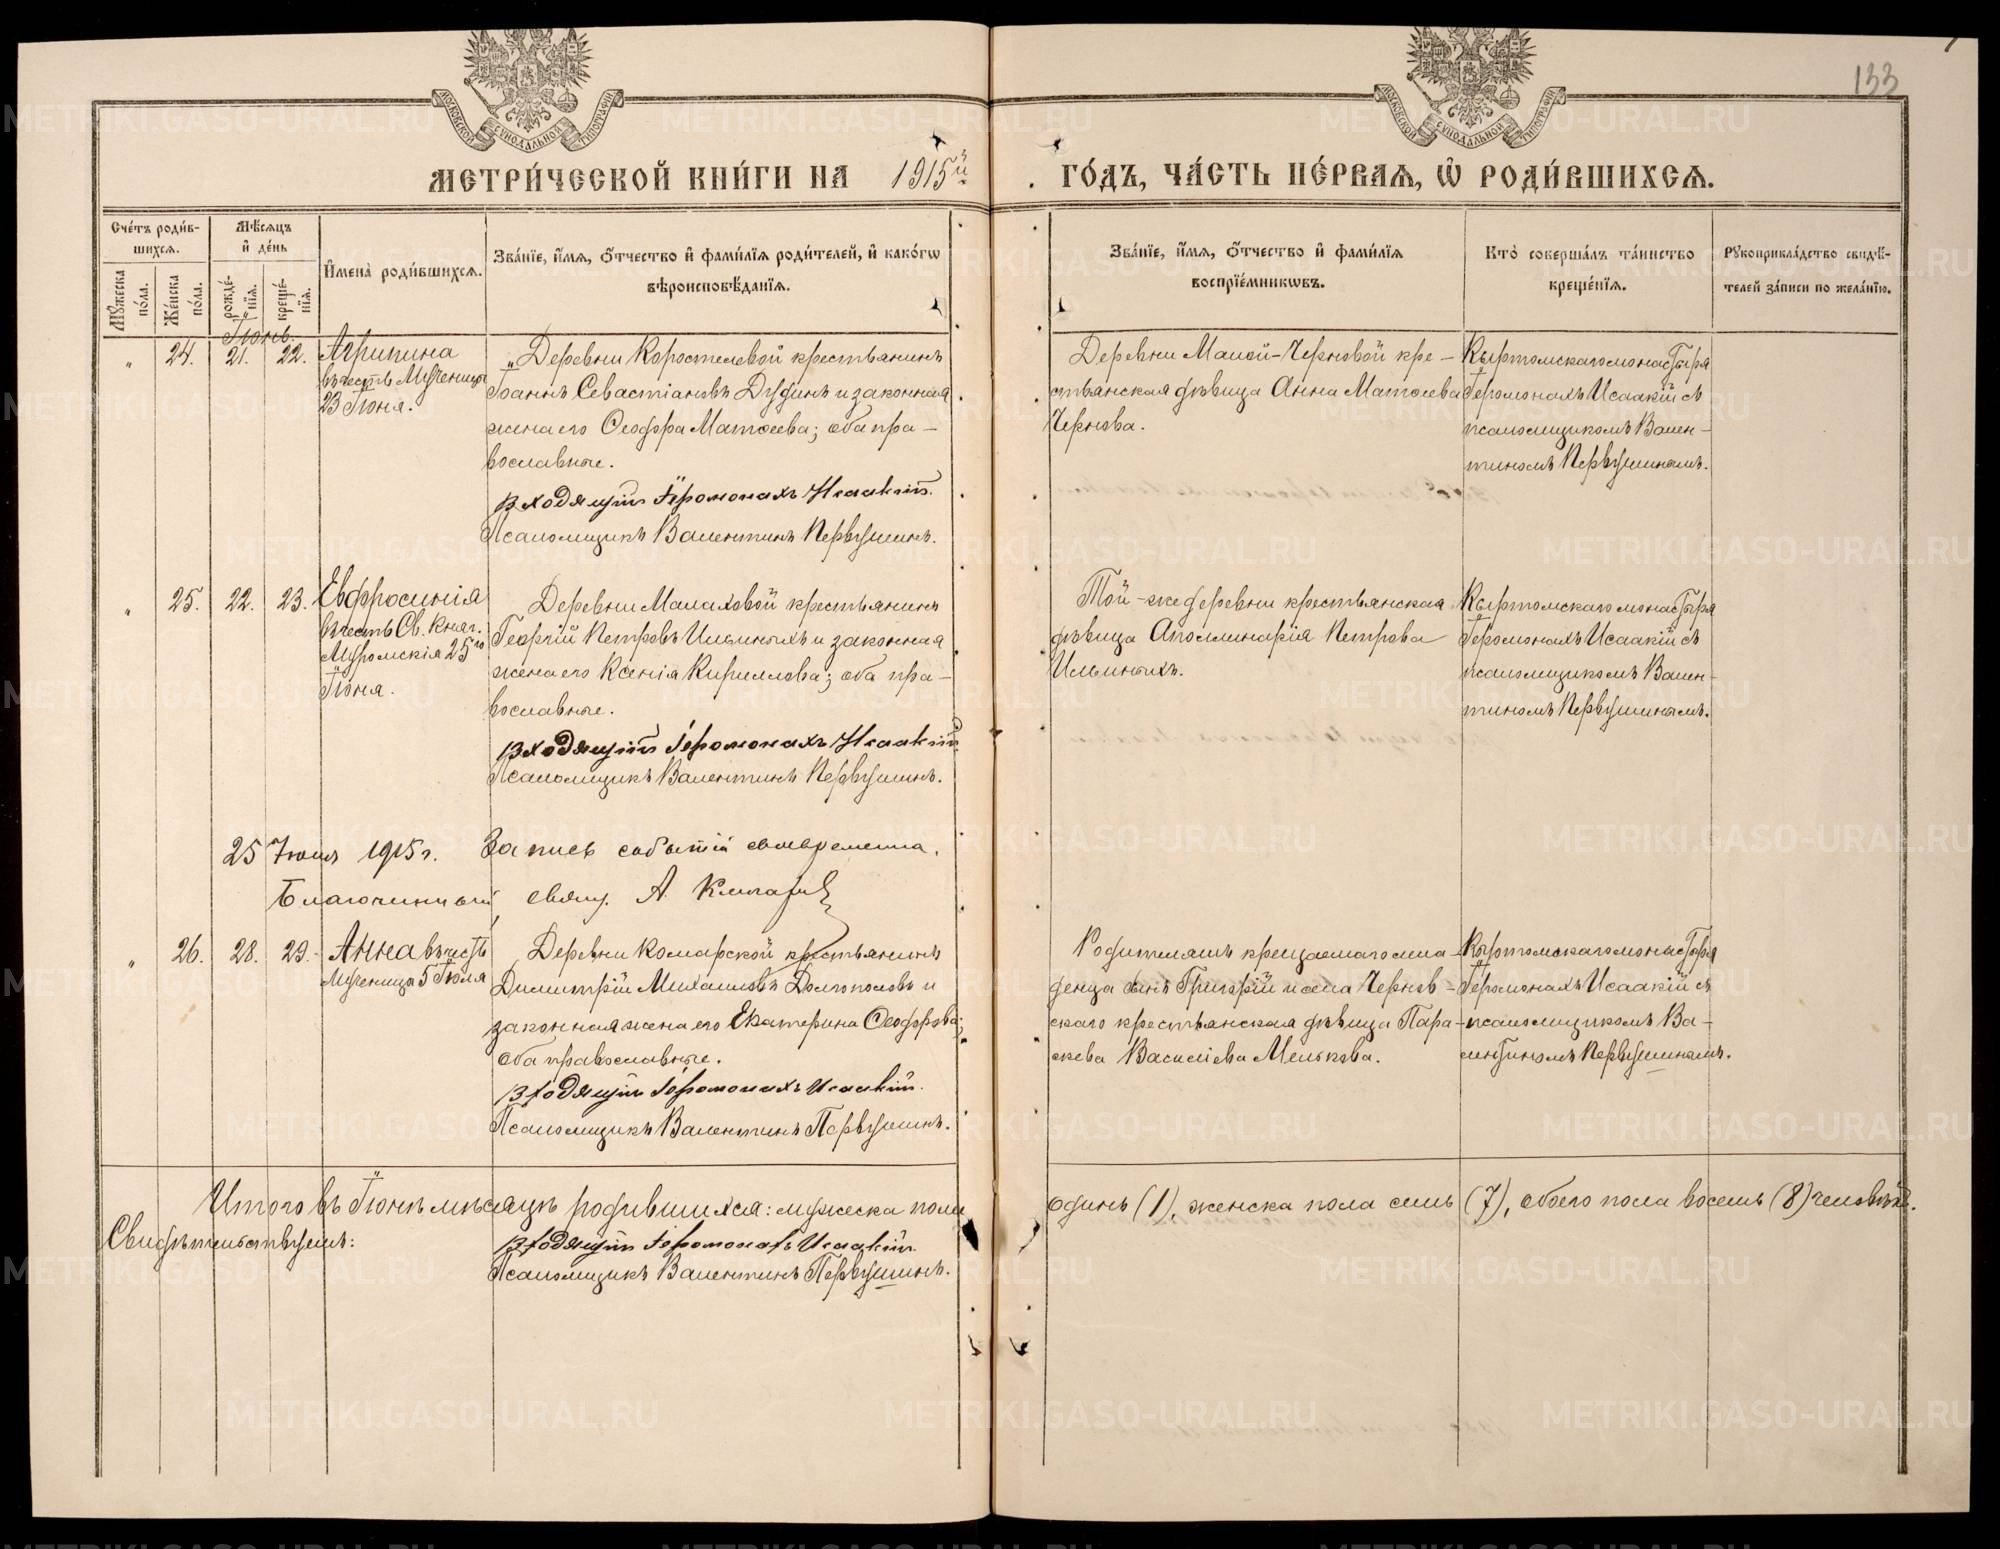 133
МОСКОВСКОЙ СѴНОДАЛЬНОЙ ТИПОГРАФІИ
МОСКОВСКОЙ СѴНОДАЛЬНОЙ ТИПОГРАФІИ
МЕТРИ́ЧЕСКОЙ КНИ́ГИ НА 1915й ГО́ДЪ, ЧА́СТЬ ПЕ́РВАѦ, Ѽ РОДИ́ВШИХСѦ.
Сче́тъ роди́в-
шихсѧ.
Мꙋ́жеска по́ла.
Же́нска по́ла.
Мѣ́сѧцъ
и҆ де́нь
рожде́-нїѧ.
креще́-нїѧ.
И҆мена̀ роди́вшихсѧ.
Зва́нїе, и҆́мѧ, ѻ҆́тчество и҆ фами́лїѧ роди́телей, и҆ како́гѡ
вѣроисповѣ́данїѧ.
Зва́нїе, и҆́мѧ, ѻ҆́тчество и҆ фами́лїѧ
воспрїе́мникѡвъ.
Кто̀ соверша́лъ та́инство
креще́нїѧ.
Рꙋкоприкла́дство свидѣ́-
телей за́писи по жела́нїю.
Іюнь.
" 24. 21. 22. Агрипина
въ честь Мученицы
23 Іюня.
Деревни Коростелевой крестьянинъ
Іоаннъ Севастіановъ Дудинъ и законная
жена его Ѳеодора Матѳеева; оба пра-
вославные.
Входящій Іеромонахъ Исаакій.
Псаломщикъ Валентинъ Первушинъ.
Деревни Малой-Черновой кре-
стьянская дѣвица Анна Матѳеева
Чернова.
Кыртомскаго монастыря
Іеромонахъ Исаакій съ
псаломщикомъ Вален-
тиномъ Первушинымъ.
" 25. 22. 23. Евфросинія
въ честь Св. Княг.
Муромскія 25го
Іюня.
Деревни Малаховой крестьянинъ
Георгій Петровъ Ильиныхъ и законная
жена его Ксенія Кириллова; оба пра-
вославные.
Входящій Іеромонахъ Исаакій
Псаломщикъ Валентинъ Первушинъ.
Той-же деревни крестьянская
дѣвица Аполлинарія Петрова
Ильиныхъ.
Кыртомскаго монастыря
Іеромонахъ Исаакій съ
псаломщикомъ Вален-
тиномъ Первушинымъ.
25 Іюня 1915 г. Запись событій своевременна.
Благочинный, свящ. А.
" 26. 28. 29. Анна въ честь
Мученицы 5 Іюля
Деревни Комарской крестьянинъ
Димитрій Михаиловъ Долгополовъ и
законная жена его Екатерина Ѳеодорова;
оба православные.
Входящій Іеромонахъ Исаакій.
Псаломщикъ Валентинъ Первушинъ.
Родителямъ крещаемаго мла-
денца сынъ Григорій и села Чернов-
скаго крестьянская дѣвица Пара-
скева Василіева Мелькова.
Кыртомскаго монастыря
Іеромонахъ Исаакій съ
псаломщикомъ Ва-
лентиномъ Первушинымъ.
Итого въ Іюнѣ мѣсяцѣ родившихся: мужеска пола одинъ (1), женска пола семь (7), обоего пола восемь (8) человѣкъ.
Свидѣтельствуемъ:
Входящій Іеромонахъ Исаакій.
Псаломщикъ Валентинъ Первушинъ.
METRIKI.GASO-URAL.RU